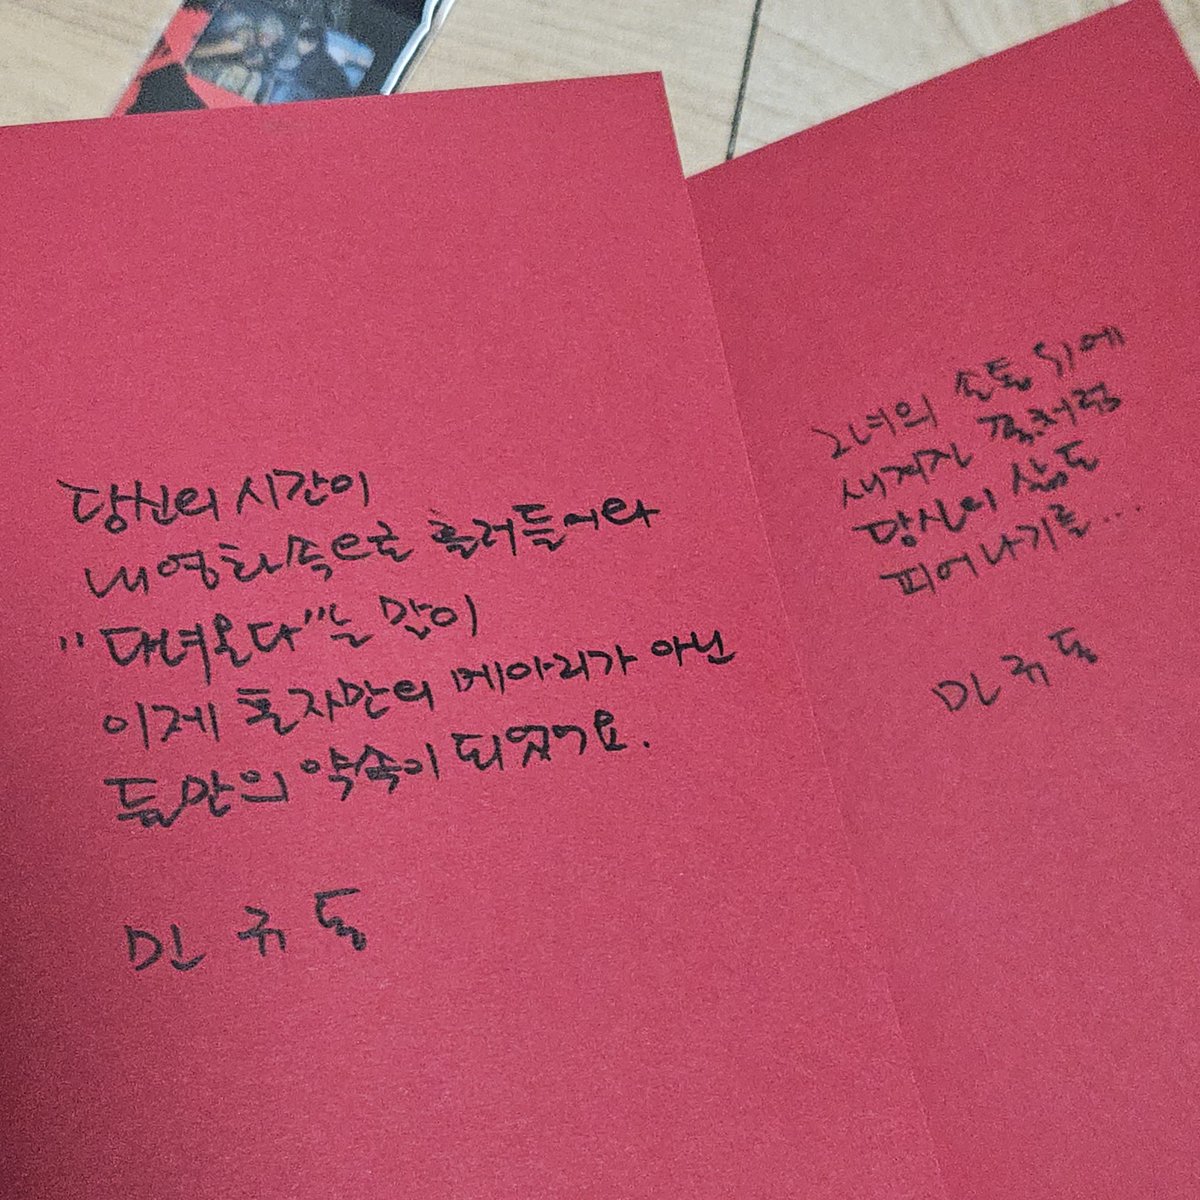 당신의 시간이
내 영화 속으로 흘러들어와
"다녀온다"는 말이
이제 혼자만의 메아리가 아닌
둘만의 약속이 되었어요.
민규동
그녀의 손톱 위에
새겨진 꽃처럼
당신의 삶도
피어나기를...
민규동